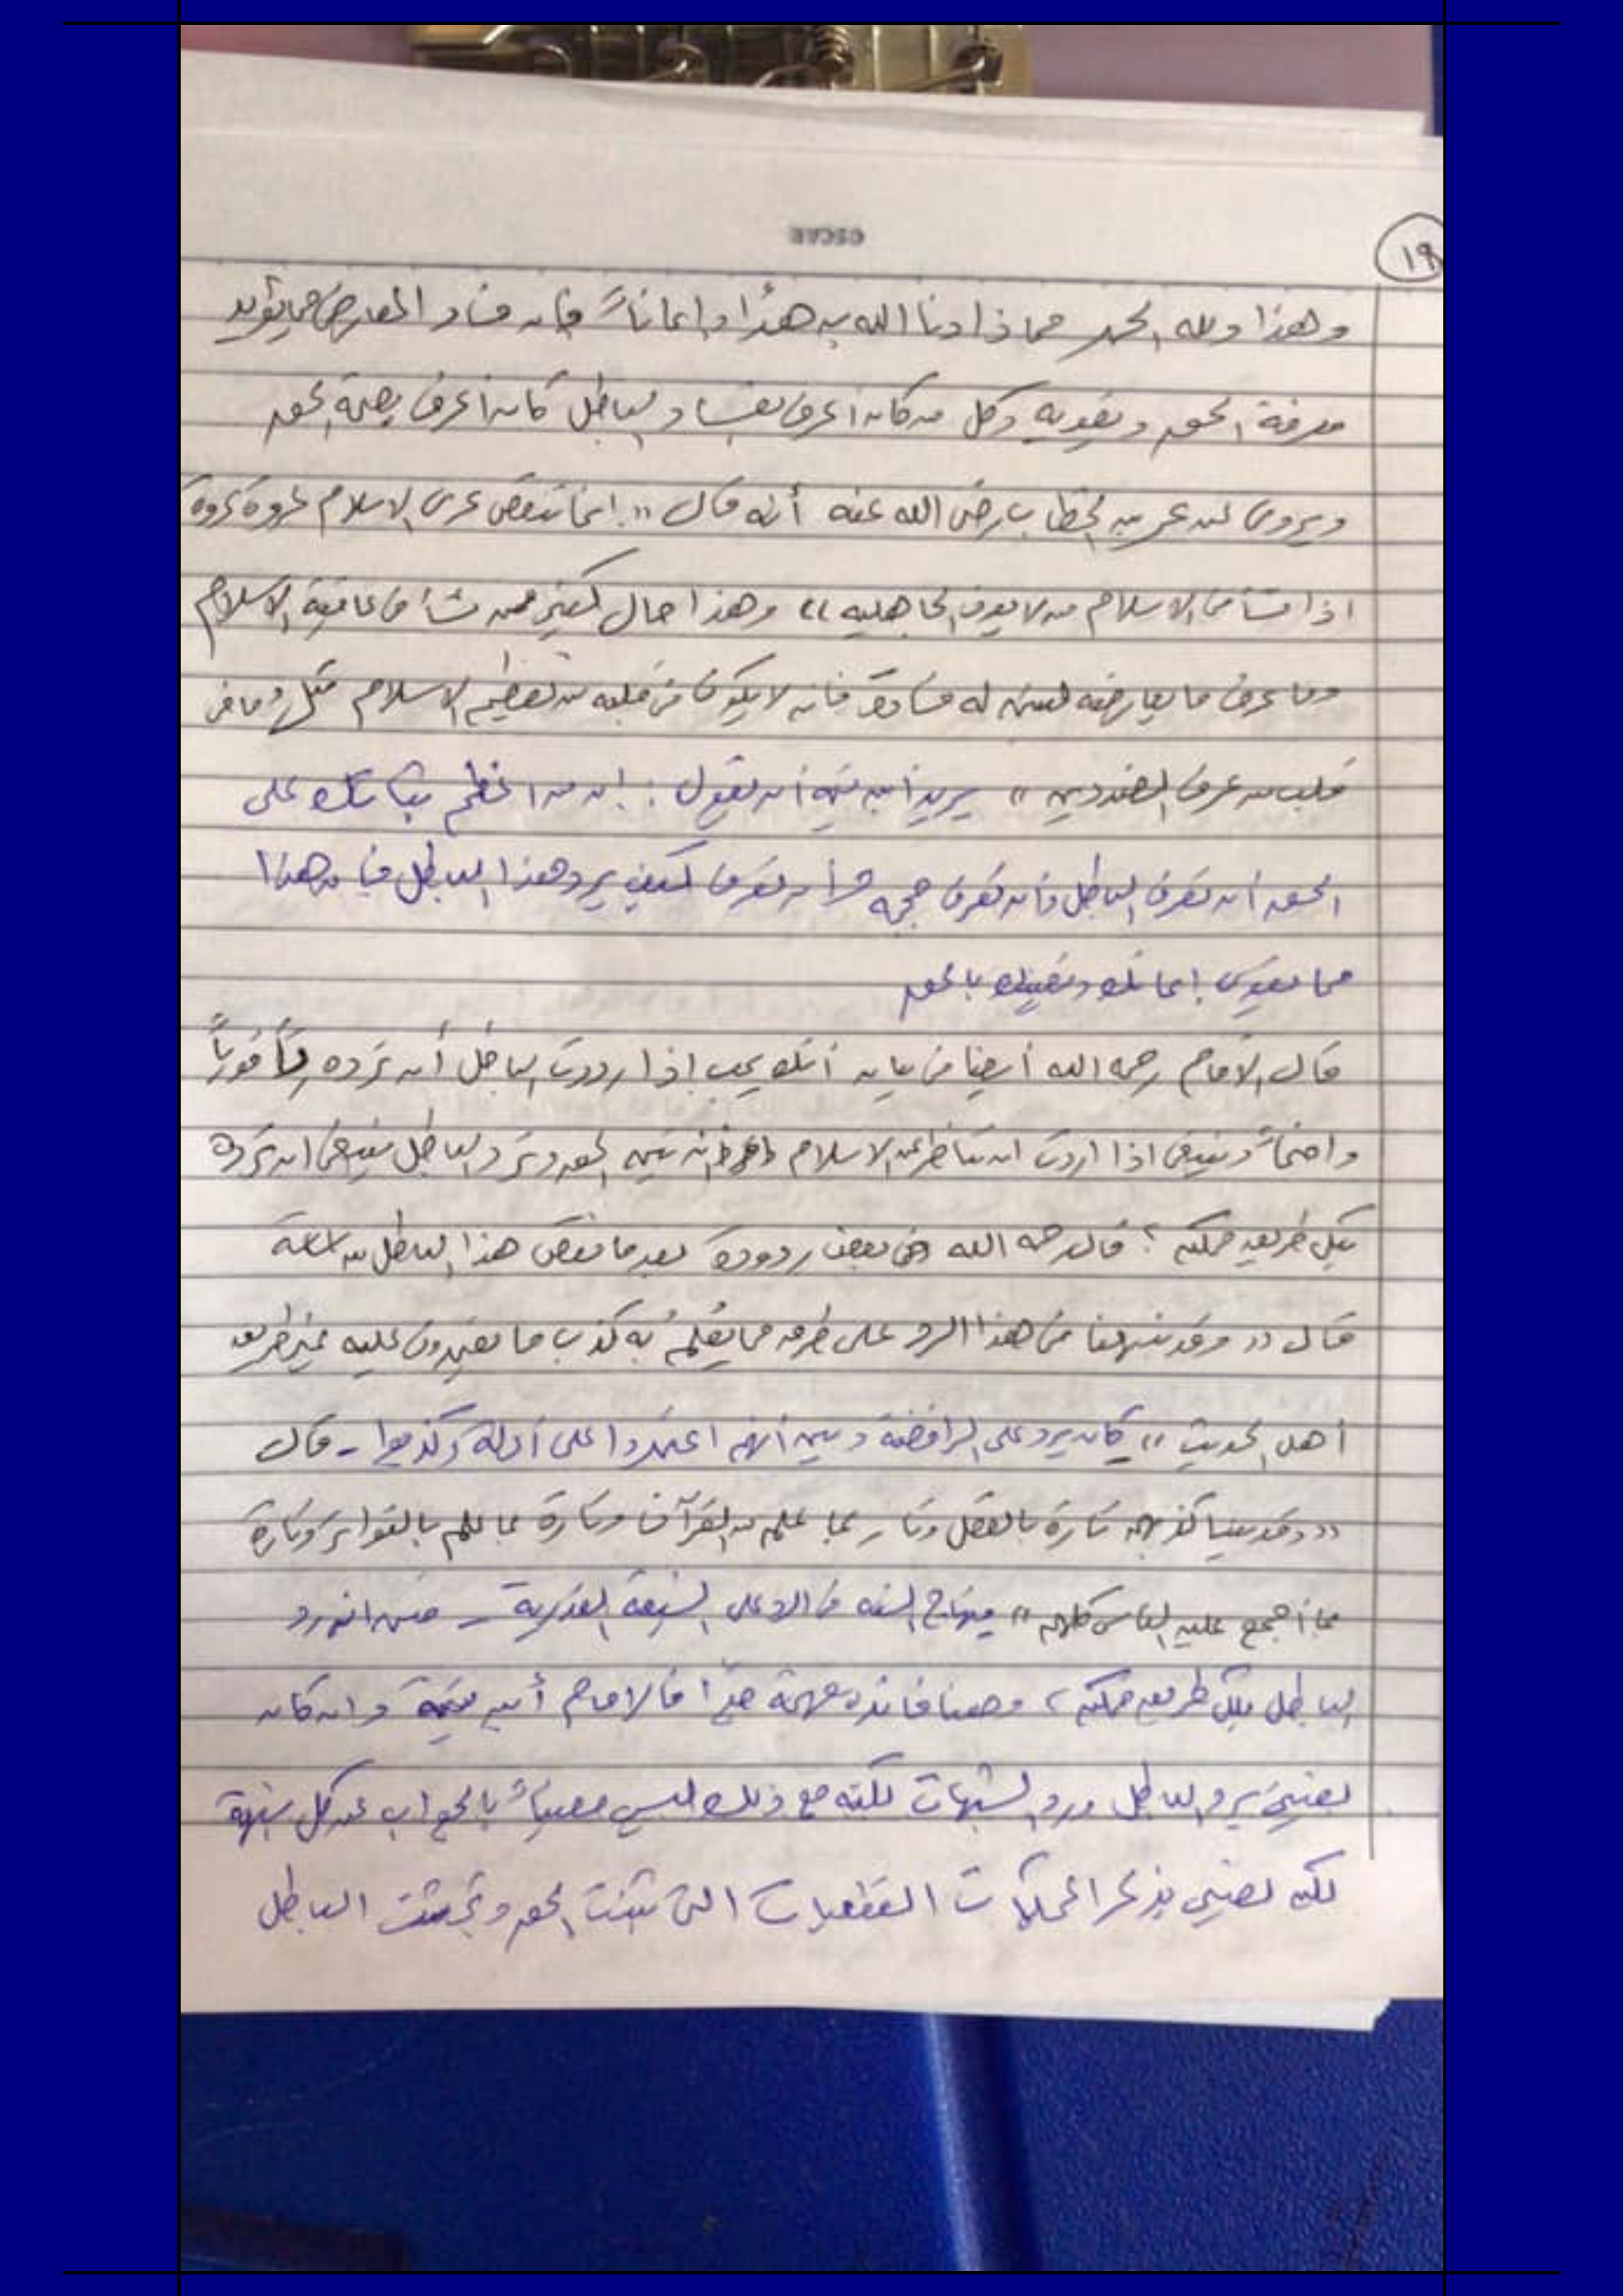 ١٩
وهذا ولله الحمد مما زادنا الله به هدًا وإيماناً فإن فساد المعارض مما يؤيد
معرفة الحق ويقويه وكل من كان أعرف بفساد الباطل كان أعرف بصحة الحق
ويروى عن عمر بن الخطاب رضي الله عنه أنه قال "إنما تنقض عرى الاسلام عروة عروة
اذا نشأ في الاسلام من لا يعرف الجاهليه" وهذا حال كثير ممن نشأ في عافية الاسلام
وما عرف ما يعارضه ليتبين له فساده فانه لا يكون في قلبه من تعظيم الاسلام مثل ما في
قلب من عرف الضدين" يريد ابن تيمية أن يقول : إن من اعظم ثباتك على
الحق أن تعرف الباطل وأن تعرف حججه وأن تعرف كيف يرد هذا الباطل فإن هذا
مما يقوي إيمانك ويقينك بالحق
قال الإمام رحمه الله أيضا في بيان أنك يجب إذا رددت الباطل أن ترده رداً قوياً
واضحاً وينبغي اذا اردت ان تناظر عن الاسلام وأن تبين الحق وترد الباطل ينبغي ان ترده
بكل طريق ممكنه ؟ قال رحمه الله في بعض ردوده بعد ما نقض هذا الباطل من
قال "وقد نبهنا في هذا الرد على طرق مما يُعلمُ به كذب ما يعتمدون عليه غير طريق
أهل الحديث" كان يرد على الرافضة وبين أنهم اعتمدوا على أدلة وكذبوا - قال
"وقد بينا كذبهم تارة بالعقل وتارة بما علم من القرآن وتارة بما علم بالتواتر وتارة
بما أجمع عليه الناس كلهم" منهاج السنه في الرد على الشيعة القدرية - فبين انه رد
الباطل بكل طريق ممكنه ، وهنا فائده مهمة جداً فالإمام أبن تيمية وان كان
يعتني برد الباطل ورد الشبهات لكنه مع ذلك ليس معنياً بالجواب عن كل شبهة
لكنه يعتني بذكر المحكمات القطعيات التي تثبت الحق وتجتث الباطل